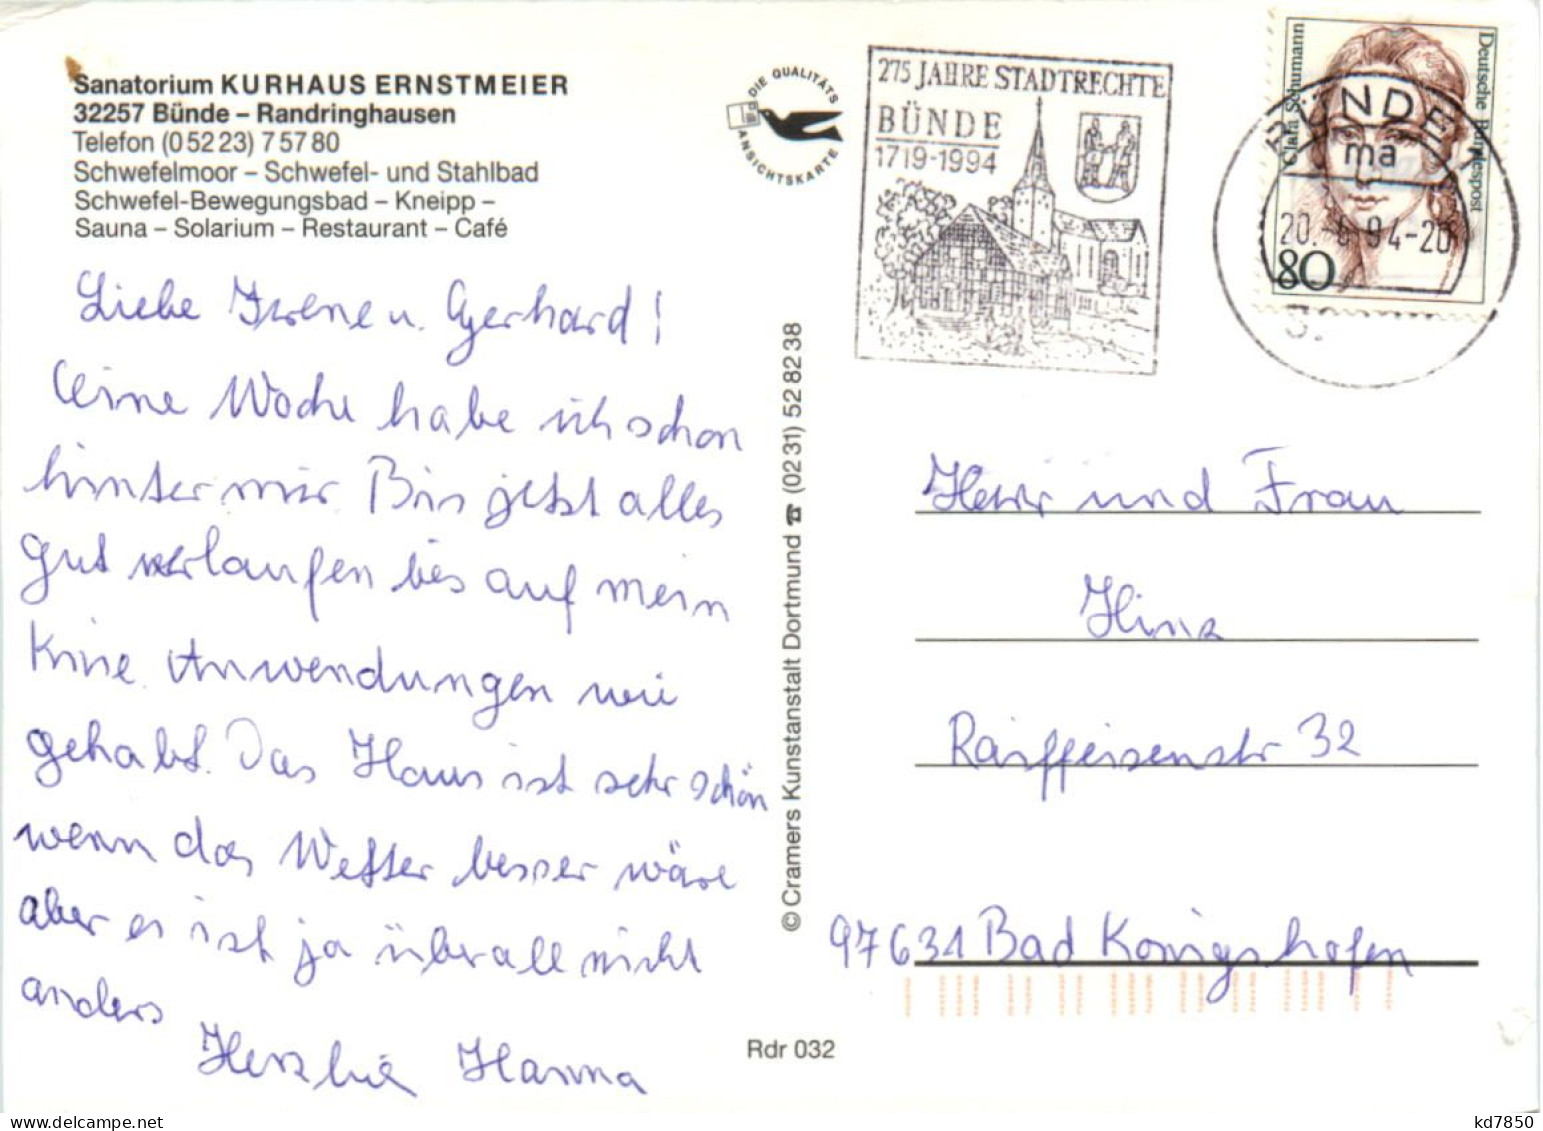 Sanatorium KURHAUS ERNSTMEIER
32257 Bünde – Randringhausen
Telefon (0 52 23) 7 57 80
Schwefelmoor – Schwefel- und Stahlbad
Schwefel-Bewegungsbad – Kneipp –
Sauna – Solarium – Restaurant – Café
DIE QUALITÄTS
ANSICHTSKARTE
275 JAHRE STADTRECHTE
BÜNDE
1719-1994
Clara Schumann
Deutsche Bundespost
80
BÜNDE 1
ma
20.-6.94-20
Liebe Irene u. Gerhard!
Eine Woche habe ich schon
hinter mir. Bin jetzt alles
gut verlaufen bis auf mein
Knie. Anwendungen wie
gehabt. Das Haus ist sehr schön
wenn das Wetter besser wäre
aber es ist ja überall nicht
anders
Herzlich Hanna
© Cramers Kunstanstalt Dortmund ☎ (02 31) 52 82 38
Herr und Frau
Hinz
Raiffeisenstr 32
97631 Bad Königshofen
Rdr 032
kd7850